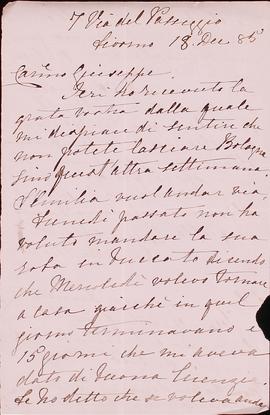 7 Via del Passeggio
Livorno 18 Dec 85
Carino Giuseppe.
Ieri ho ricevuto la
grata vostra dalla quale
mi dispiace di sentire che
non potete lasciare Bologna
sino quest'altra settimana.
L'Emilia vuol andar via.
Lunedì passato non ha
voluto mandare la sua
roba in bucato dicendo
che Mercoledì voleva tornare
a casa giacchè in quel
giorno terminavano i
15 giorni che mi aveva
dato di buona
Le ho detto che se voleva andar